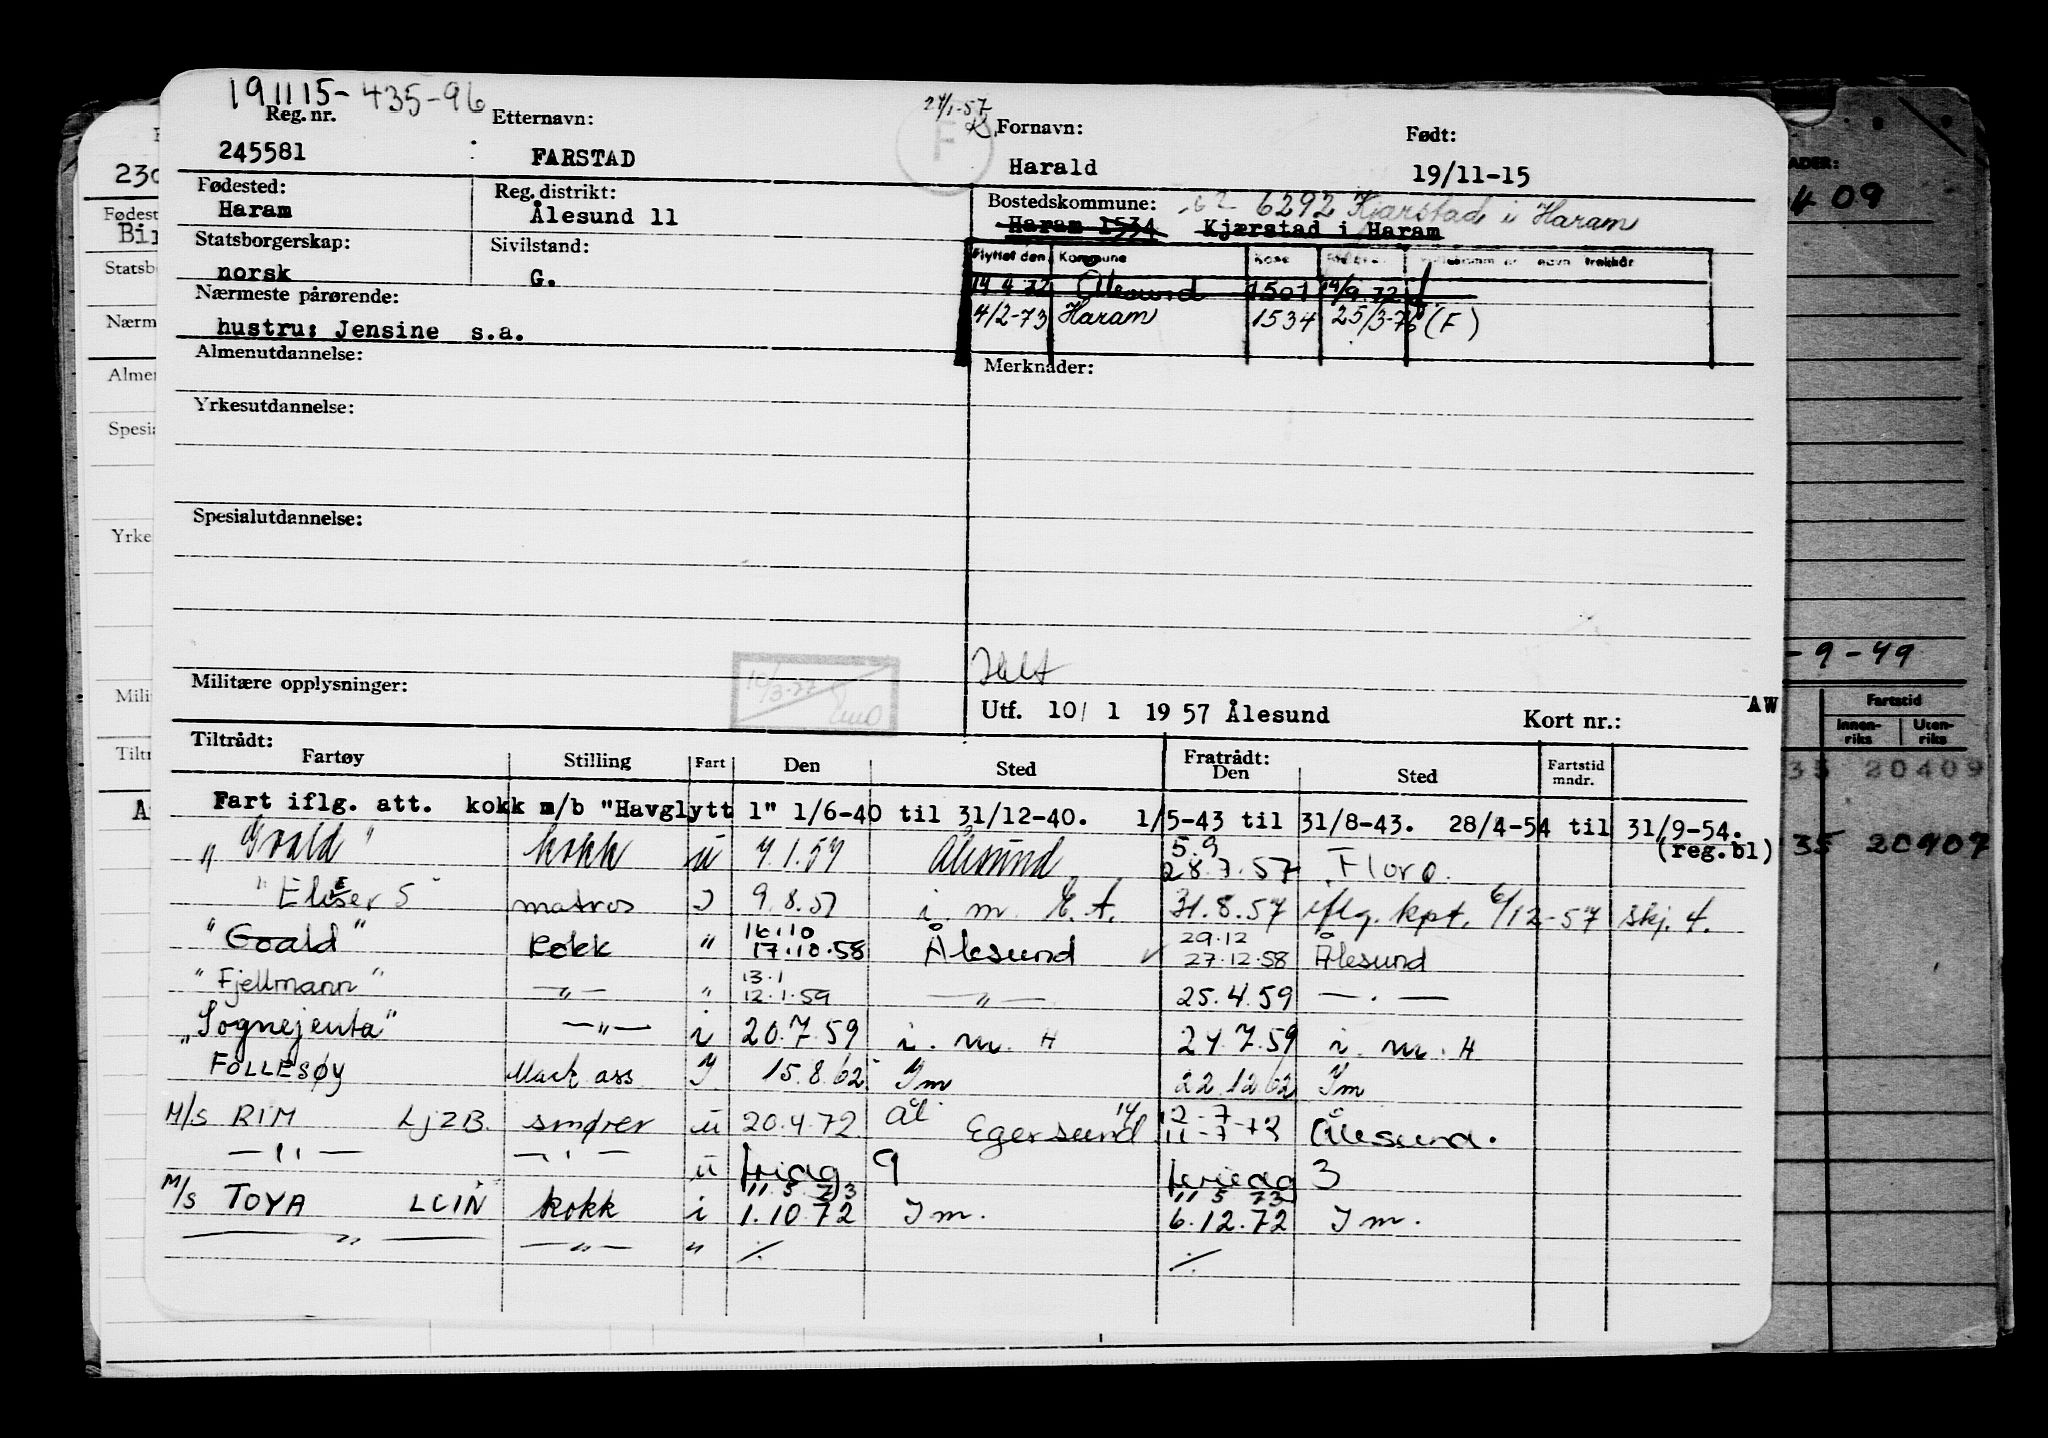 191115-435-96
Reg. nr. Etternavn: 24/1-57 Fornavn: Født:
245581 FARSTAD F Harald 19/11-15
Fødested: Reg. distrikt: Bostedskommune: 6292 Kjørstad i Haram
Haram Ålesund 11 Haram 1534 Kjærstad i Haram
Statsborgerskap: Sivilstand: Flyttet den Kommune
norsk G. 14 4 72 Ålesund 1501 14/9.72
Nærmeste pårørende: 4/2-73 Haram 1534 25/3-75 (F)
hustru: Jensine s.a.
Almenutdannelse: Merknader:
Yrkesutdannelse:
Spesialutdannelse:
Militære opplysninger:
Utf. 10/ 1 19 57 Ålesund Kort nr.: AW
Tiltrådt: Fratrådt:
Fartøy Stilling Fart Den Sted Den Sted Fartstid mndr.
Fart iflg. att. kokk m/b "Havglytt 1" 1/6-40 til 31/12-40. 1/5-43 til 31/8-43. 28/4-54 til 31/9-54.
(reg.bl)
" Goald " kokk u 7.1.57 Ålesund 5.9 28.7.57 Florø.
" Elieser S " matros I 9.8.57 i. m. E. A. 31.8.57 iflg. kpt. 6/12-57 skj. 4.
" Goald " kokk " 16.10 17.10.58 Ålesund 29.12 27.12.58 Ålesund
" Fjellmann " —"— " 13.1 12.1.59 —"— 25.4.59 —.—
" Sognejenta " —"— i 20.7.59 i. m. H 24.7.59 i. m. H
FOLLESØY Mask ass I 15.8.62 Im 22.12.62 Im
M/S RIM LJZB smører u 20.4.72 Ål Egersund 14/ 12-7- 11-7-72 Ålesund.
—"— —"— u fridag 9 feriedag 3
M/S TOYA LCIN kokk i 11 5 73 1.10.72 Im. 11 5 73 6.12.72 Im.
—"— —"— " ./. ./.